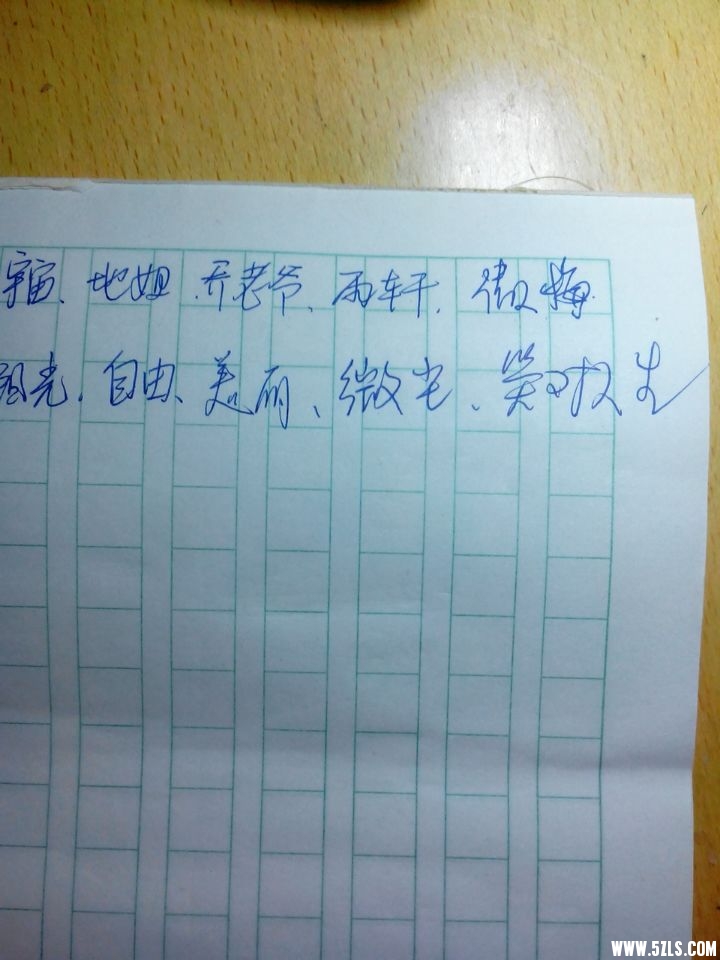 宇宙、地姐、乔老爷、雨轩、傲梅
祖光、自由、美丽、微光、笑对人生
WWW.5ZLS.COM